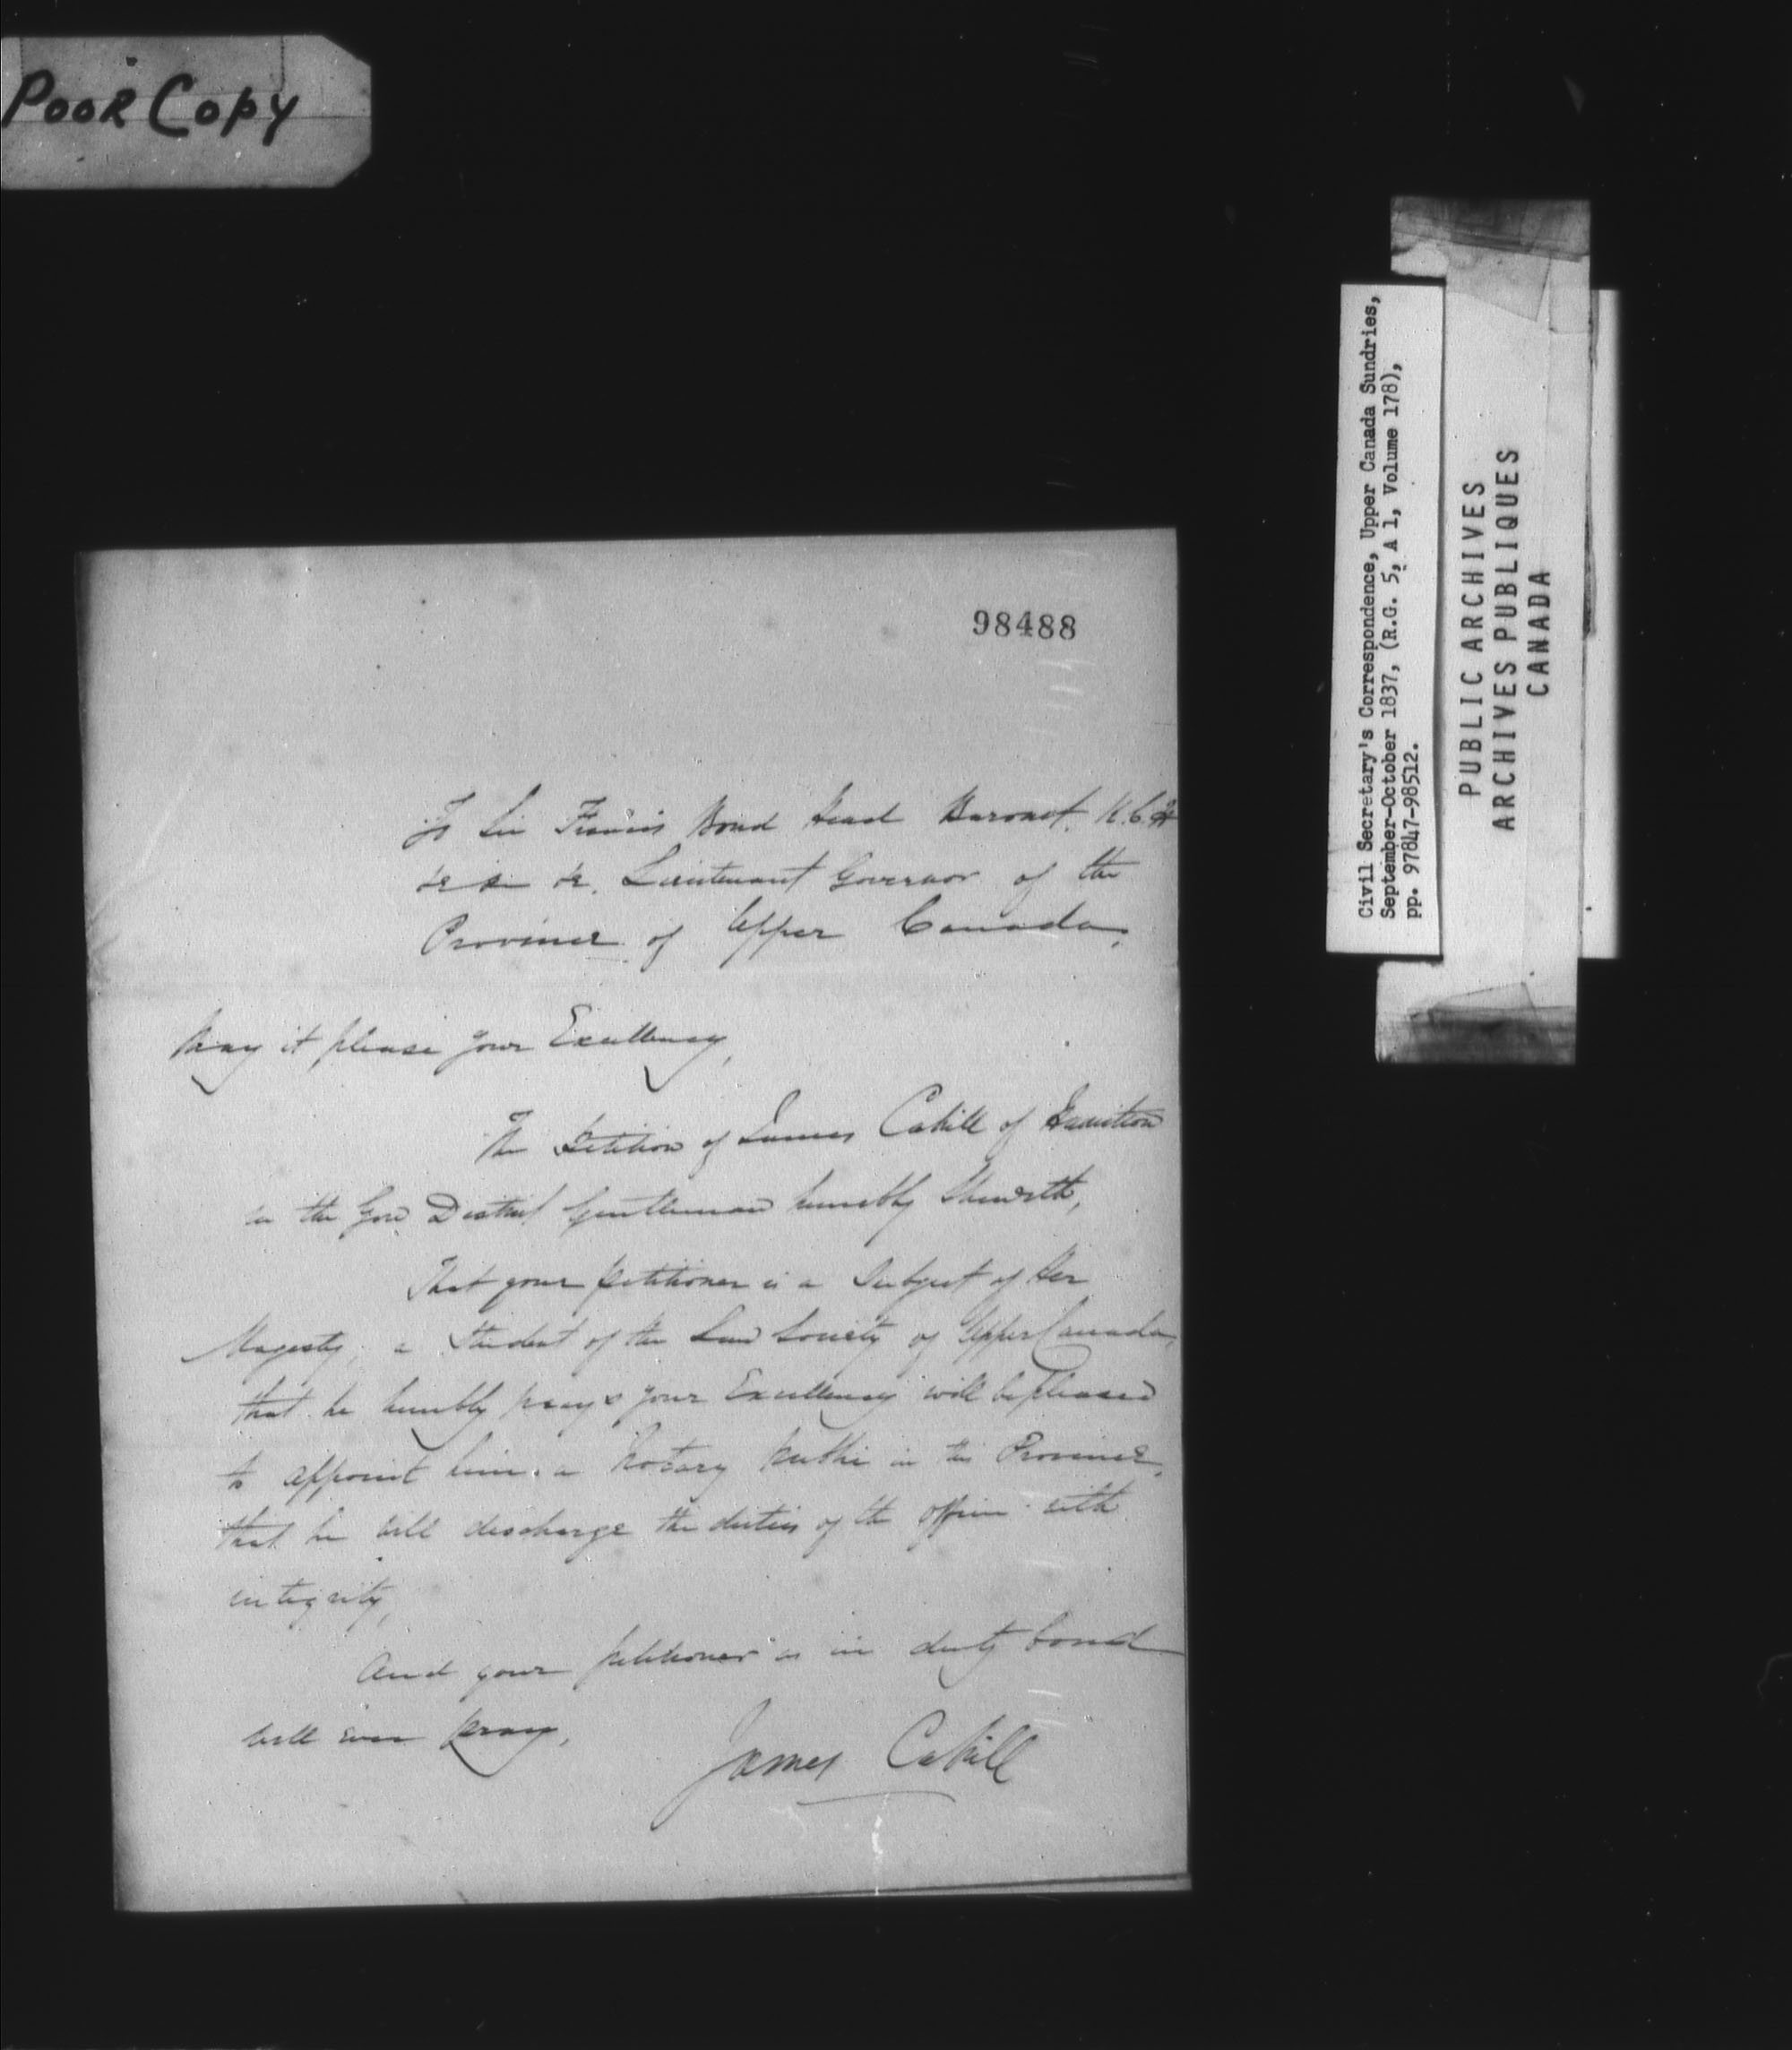 POOR COPY
98488
To Sir Francis Bond Head Baronet. K.C.H
&c &c &c. Lieutenant Governor of the
Province of Upper Canada,
May it please your Excellency,
The Petition of James Cahill of Hamilton
in the Gore District Gentleman humbly Sheweth,
That your petitioner is a Subject of Her
Magesty, a Student of the Law Society of Upper Canada,
that he humbly prays your Excellency will be pleased
to appoint him a Notary Public in this Province,
that he will discharge the duties of the office with
integrity,
And your petitioner as in duty bound
will ever pray,
James Cahill
Civil Secretary's Correspondence, Upper Canada Sundries,
September-October 1837, (R.G. 5, A 1, Volume 178),
pp. 97847-98512.
PUBLIC ARCHIVES
ARCHIVES PUBLIQUES
CANADA